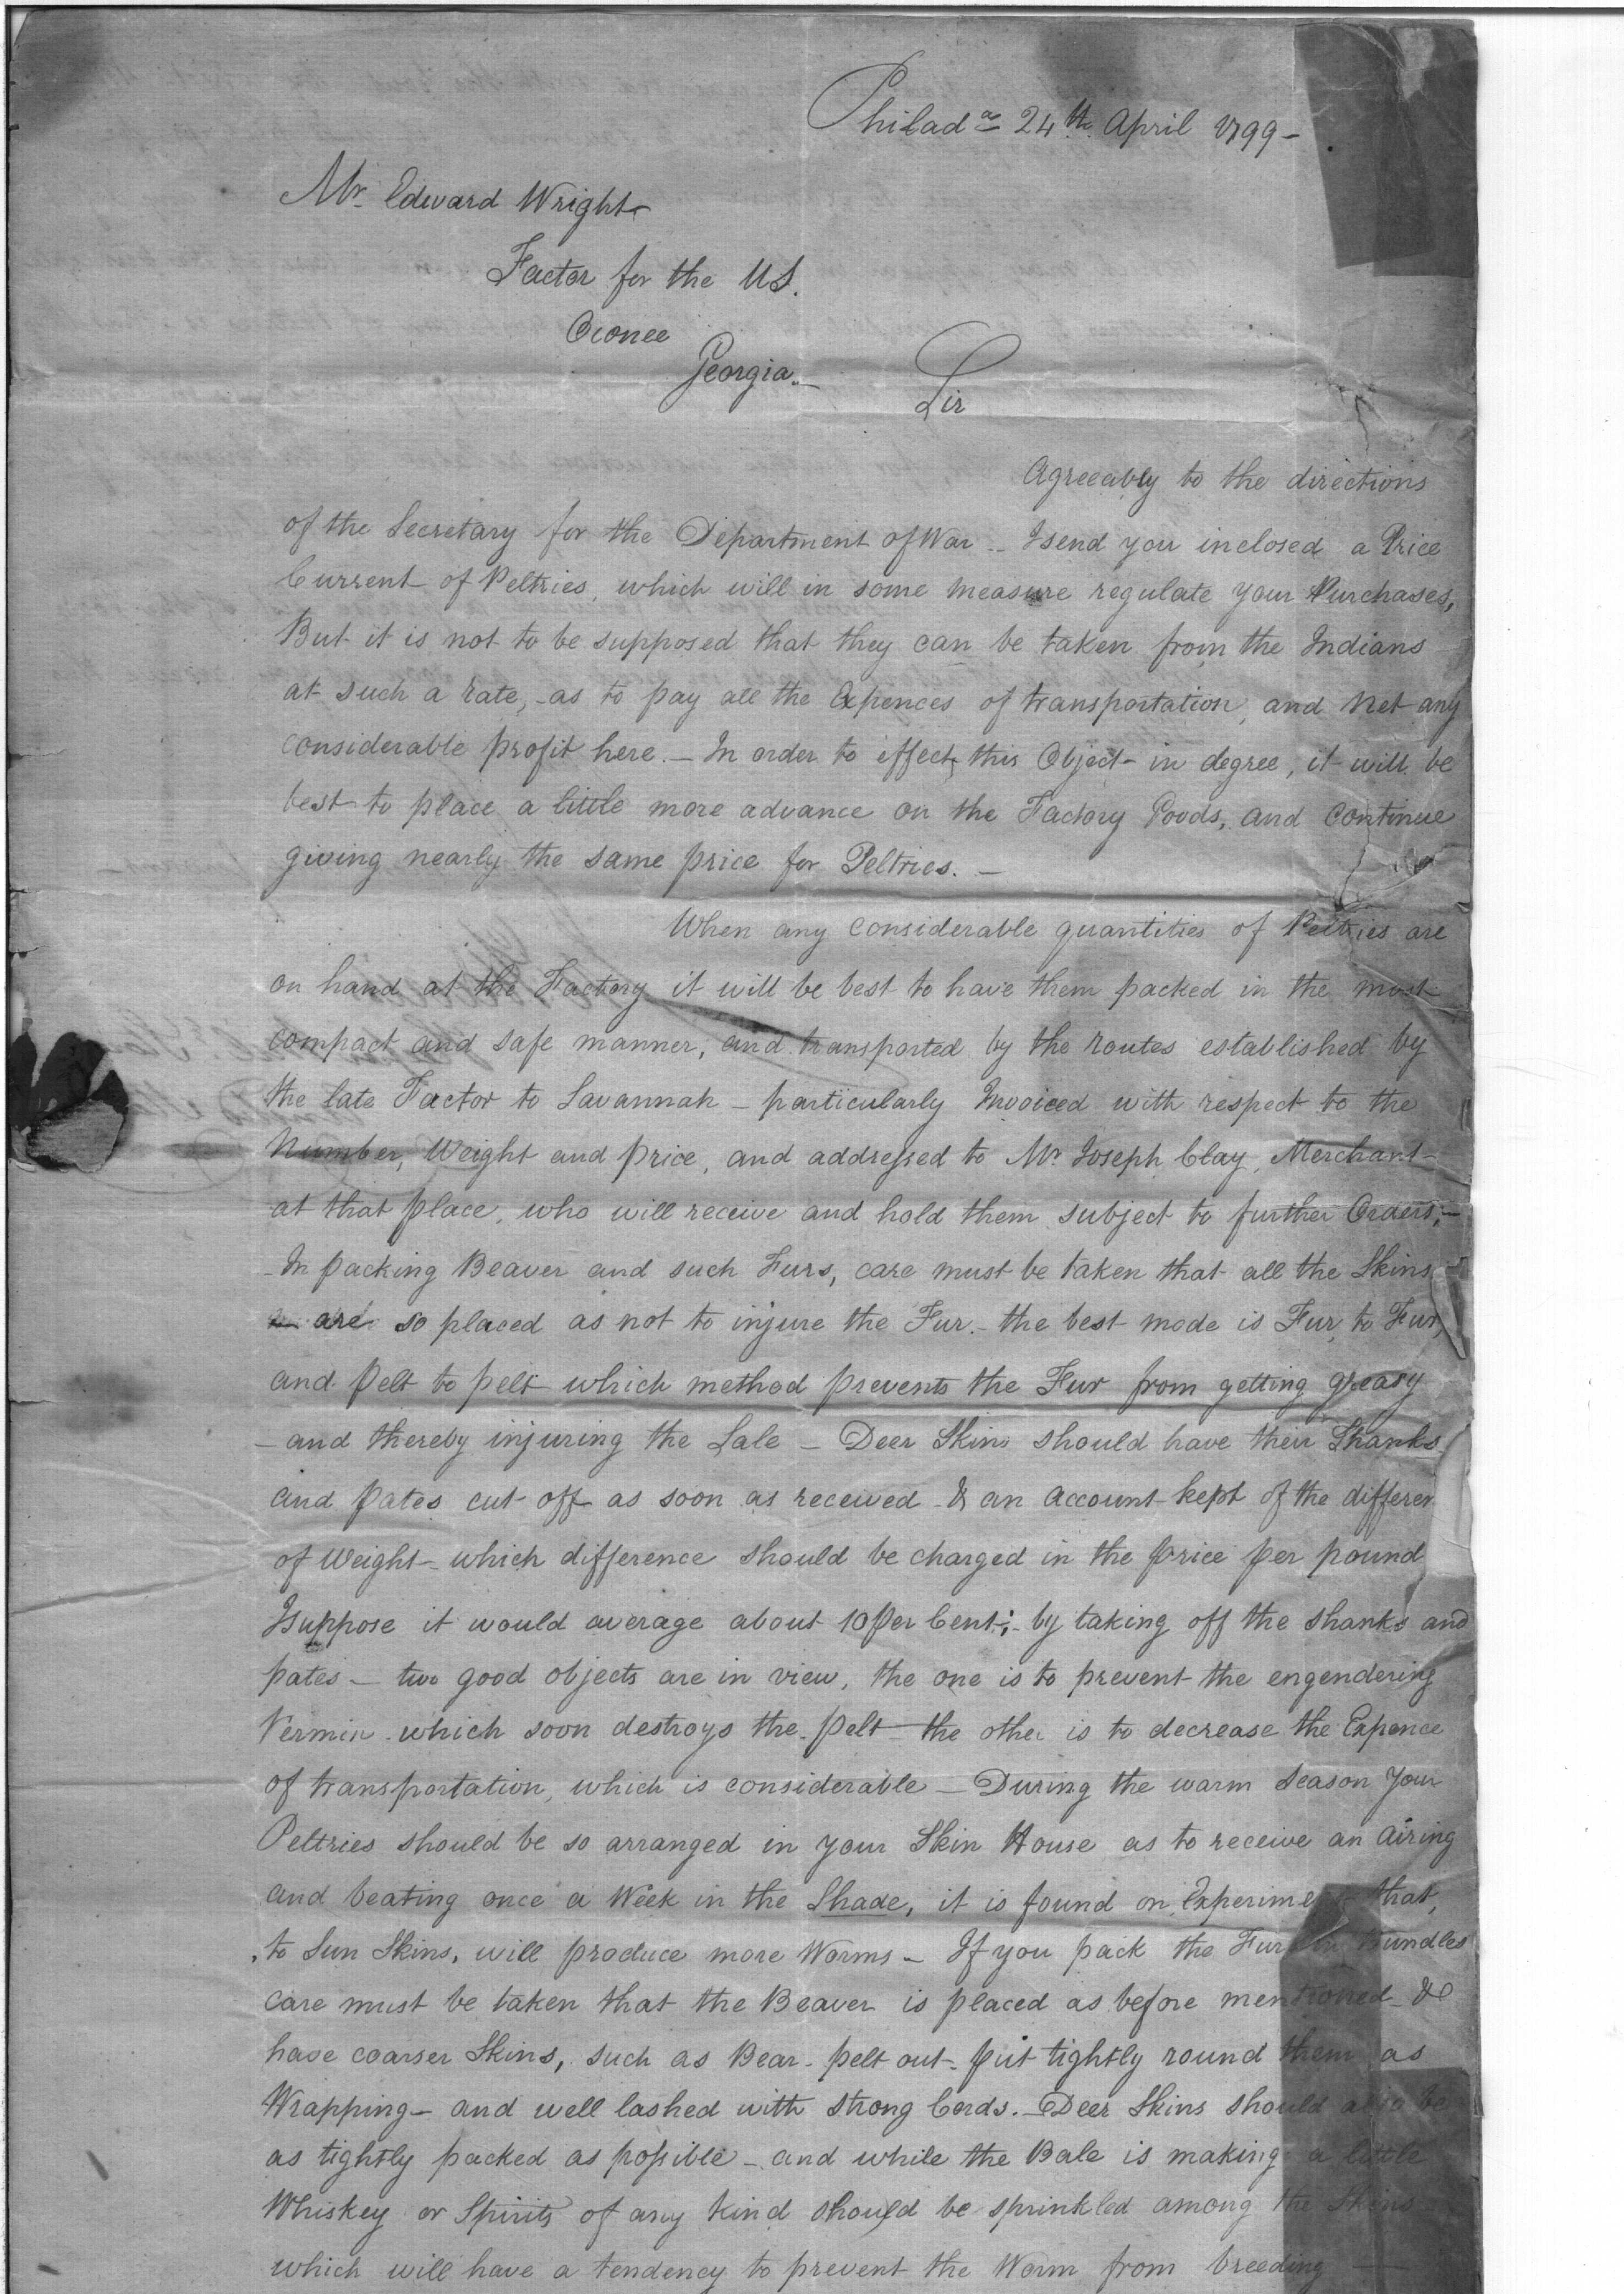 Philad.a 24th April 1799 -
Mr. Edward Wright
Factor for the US.
Oconee
Georgia. -
Sir
Agreeably to the directions
of the Secretary for the Department of War - I send you inclosed a Price
Current of Peltries, which will in some measure regulate your Purchases,
But it is not to be supposed that they can be taken from the Indians
at such a rate, - as to pay all the Expences of transportation, and net any
considerable profit here. - In order to effect this Object - in degree, it will be
best to place a little more advance on the Factory Goods, and continue
giving nearly the same price for Peltries. -
When any considerable quantities of Peltries are
on hand at the Factory it will be best to have them packed in the most
compact and safe manner, and transported by the routes established by
the late Factor to Savannah - particularly Invoiced with respect to the
Number, Weight and price, and addressed to Mr. Joseph Clay, Merchant -
at that place, who will receive and hold them subject to further Orders; -
- In packing Beaver and such Furs, care must be taken that all the Skins
are so placed as not to injure the Fur. - the best mode is Fur to Fur,
and pelt to pelt which method prevents the Fur from getting greasy
- and thereby injuring the Sale - Deer Skins should have their Shanks
and pates cut off as soon as received - & an account kept of the differen
of Weight - which difference should be charged in the price per pound
I suppose it would average about 10 per Cent; - by taking off the shanks and
pates - two good objects are in view, the one is to prevent the engendering
Vermin which soon destroys the pelt - the other is to decrease the Expence
of transportation, which is considerable - During the warm Season Your
Peltries should be so arranged in your Skin House as to receive an airing
and beating once a Week in the Shade, it is found on Experiment that,
to Sun Skins, will produce more Worms - If you pack the Fur in bundles
care must be taken that the Beaver is placed as before mentioned - &
have coarser Skins, such as Bear - pelt out - put tightly round them as
Wrapping - and well lashed with strong Cords. - Deer Skins should also be
as tightly packed as possible - and while the Bale is making a little
Whiskey or Spirits of any kind should be sprinkled among the Skins
which will have a tendency to prevent the Worm from breeding -